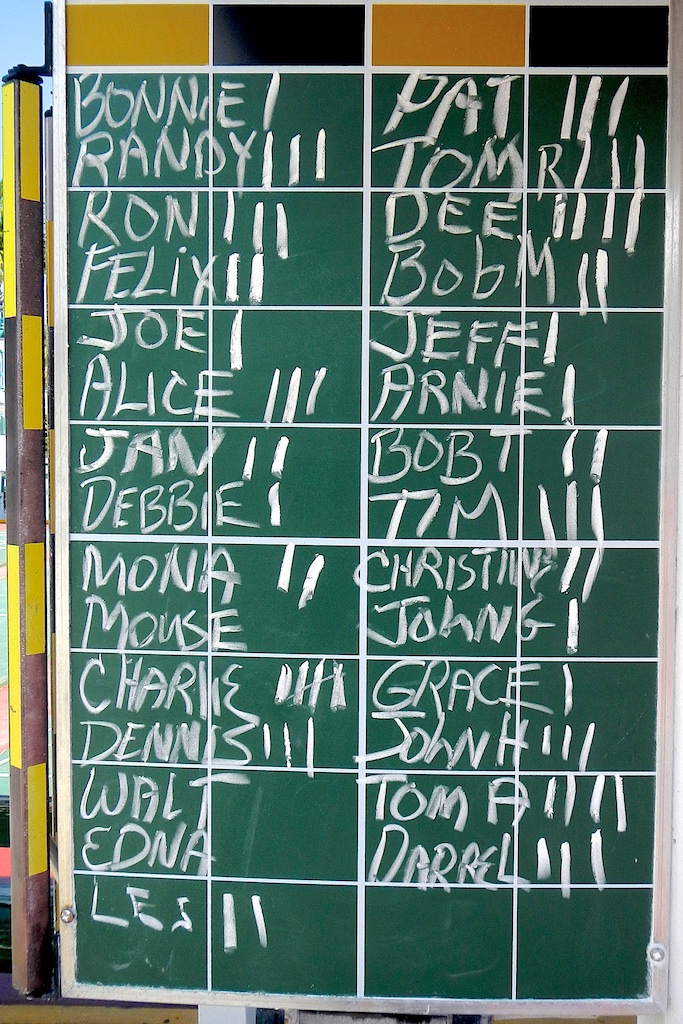 BONNiE |
RANDY |||
RON |||
FELiX ||
JOE |
ALICE |||
JAN ||
DEBBIE |
MONA ||
MOUSE
CHARLIE |||||
DENNIS |||
WALT
EDNA
LES ||
PAT |||
TOM R |||
DEE ||||
BOb M ||
JEFF |
ARNIE |
BOB T ||
TIM |||
CHRISTINE ||
JOHN G |
GRACE |
JOHN H |||
TOM A ||||
DARREL |||